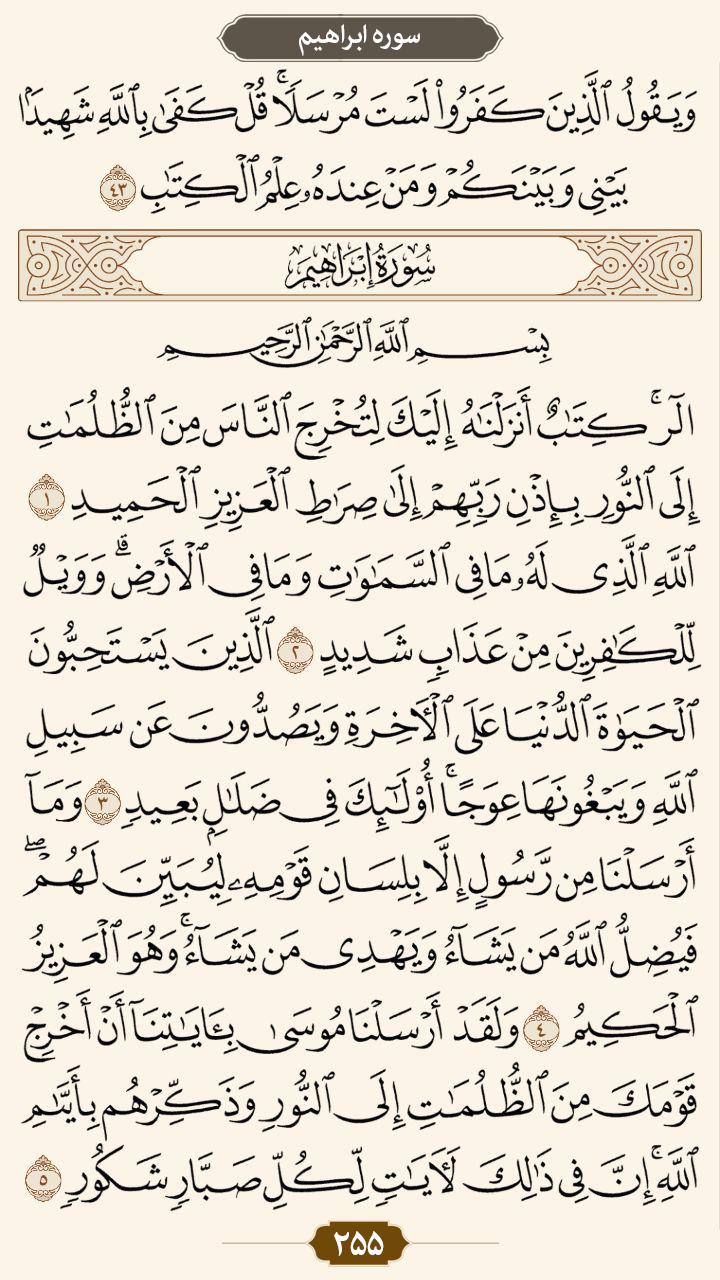 سوره ابراهیم
وَيَقُولُ ٱلَّذِينَ كَفَرُوا۟ لَسْتَ مُرْسَلًا ۚ قُلْ كَفَىٰ بِٱللَّهِ شَهِيدًۢا
بَيْنِى وَبَيْنَكُمْ وَمَنْ عِندَهُۥ عِلْمُ ٱلْكِتَـٰبِ ٤٣
سُورَةُ إِبْرَاهِيمَ
بِسْمِ ٱللَّهِ ٱلرَّحْمَـٰنِ ٱلرَّحِيمِ
الٓر ۚ كِتَـٰبٌ أَنزَلْنَـٰهُ إِلَيْكَ لِتُخْرِجَ ٱلنَّاسَ مِنَ ٱلظُّلُمَـٰتِ
إِلَى ٱلنُّورِ بِإِذْنِ رَبِّهِمْ إِلَىٰ صِرَٰطِ ٱلْعَزِيزِ ٱلْحَمِيدِ ١
ٱللَّهِ ٱلَّذِى لَهُۥ مَا فِى ٱلسَّمَـٰوَٰتِ وَمَا فِى ٱلْأَرْضِ ۗ وَوَيْلٌ
لِّلْكَـٰفِرِينَ مِنْ عَذَابٍ شَدِيدٍ ٢ ٱلَّذِينَ يَسْتَحِبُّونَ
ٱلْحَيَوٰةَ ٱلدُّنْيَا عَلَى ٱلْـَٔاخِرَةِ وَيَصُدُّونَ عَن سَبِيلِ
ٱللَّهِ وَيَبْغُونَهَا عِوَجًا ۚ أُو۟لَـٰٓئِكَ فِى ضَلَـٰلٍۭ بَعِيدٍ ٣ وَمَآ
أَرْسَلْنَا مِن رَّسُولٍ إِلَّا بِلِسَانِ قَوْمِهِۦ لِيُبَيِّنَ لَهُمْ ۖ
فَيُضِلُّ ٱللَّهُ مَن يَشَآءُ وَيَهْدِى مَن يَشَآءُ ۚ وَهُوَ ٱلْعَزِيزُ
ٱلْحَكِيمُ ٤ وَلَقَدْ أَرْسَلْنَا مُوسَىٰ بِـَٔايَـٰتِنَآ أَنْ أَخْرِجْ
قَوْمَكَ مِنَ ٱلظُّلُمَـٰتِ إِلَى ٱلنُّورِ وَذَكِّرْهُم بِأَيَّىٰمِ
ٱللَّهِ ۚ إِنَّ فِى ذَٰلِكَ لَـَٔايَـٰتٍ لِّكُلِّ صَبَّارٍ شَكُورٍ ٥
۲۵۵